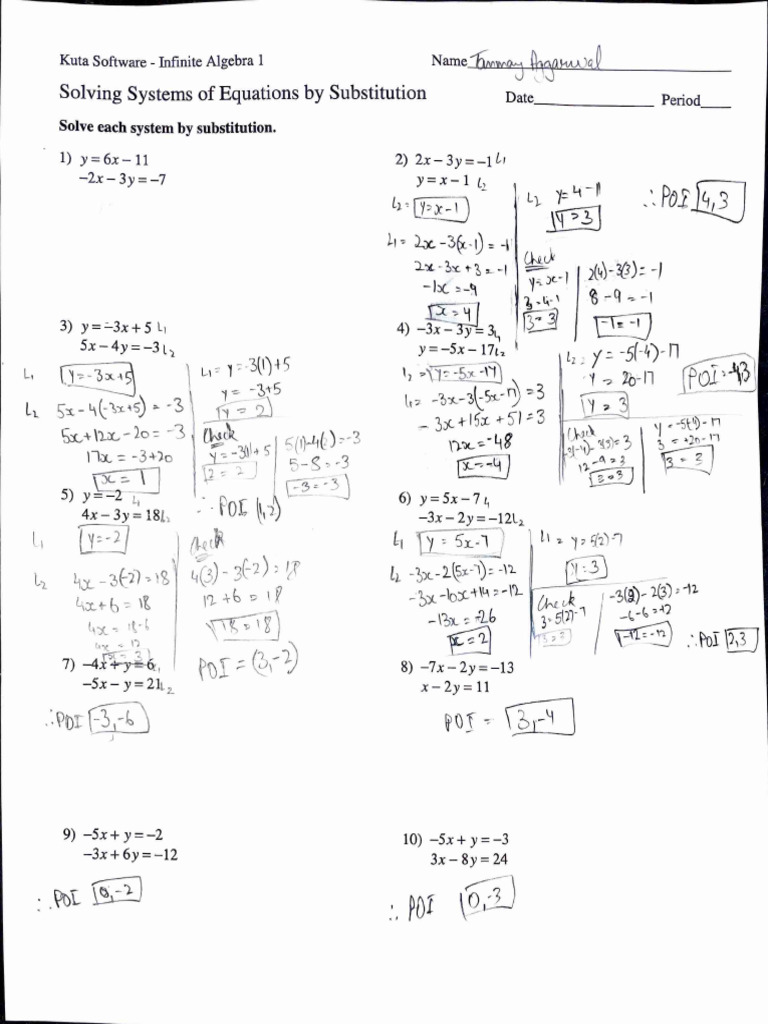 Kuta Software - Infinite Algebra 1
Name Tanmay Aggarwal
Solving Systems of Equations by Substitution
Date Period
Solve each system by substitution.
1) y = 6x − 11
−2x − 3y = −7
2) 2x − 3y = −1 L1
y = x − 1 L2
L2 = y = x − 1
L1 = 2x − 3(x − 1) = −1
2x − 3x + 3 = −1
−1x = −4
x = 4
L2 y = 4 − 1
y = 3
Check
y = x − 1
3 = 4 − 1
3 = 3
2(4) − 3(3) = −1
8 − 9 = −1
−1 = −1
∴ POI 4, 3
3) y = −3x + 5 L1
5x − 4y = −3 L2
L1 y = −3x + 5
L2 5x − 4(−3x + 5) = −3
5x + 12x − 20 = −3
17x = −3 + 20
x = 1
L1 = y = −3(1) + 5
y = −3 + 5
y = 2
Check
y = −3(1) + 5
2 = 2
5(1) − 4( ) = −3
5 − 8 = −3
−3 = −3
∴ POI (1, 2)
4) −3x − 3y = 3 L1
y = −5x − 17 L2
L2 = y = −5x − 17
L1 = −3x − 3(−5x − 17) = 3
−3x + 15x + 51 = 3
12x = −48
x = −4
L2 = y = −5(−4) − 17
y = 20 − 17
y = 3
Check
−3(−4) − 3(3) = 3
12 − 9 = 3
3 = 3
3 = +20 − 17
3 = 3
POI = −4, 3
5) y = −2 L1
4x − 3y = 18 L2
L1 y = −2
L2 4x − 3(−2) = 18
4x + 6 = 18
4x = 18 − 6
4x = 12
x = 3
Check
4(3) − 3(−2) = 18
12 + 6 = 18
18 = 18
POI = (3, −2)
6) y = 5x − 7 L1
−3x − 2y = −12 L2
L1 y = 5x − 7
L2 −3x − 2(5x − 7) = −12
−3x − 10x + 14 = −12
−13x = −26
x = 2
L1 = y = 5(2) − 7
y = 3
Check
3 = 5(2) − 7
3 = 3
−3(2) − 2(3) = −12
−6 − 6 = −12
−12 = −12
∴ POI 2, 3
7) −4x + y = 6 L1
−5x − y = 21 L2
∴ POI −3, −6
8) −7x − 2y = −13
x − 2y = 11
POI = 3, −4
9) −5x + y = −2
−3x + 6y = −12
∴ POI 0, −2
10) −5x + y = −3
3x − 8y = 24
∴ POI 0, −3